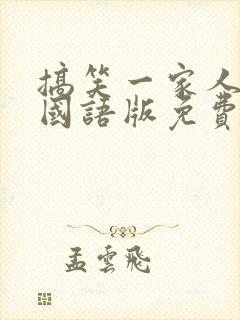 搞笑一家人
國語版免費
孟雲飛